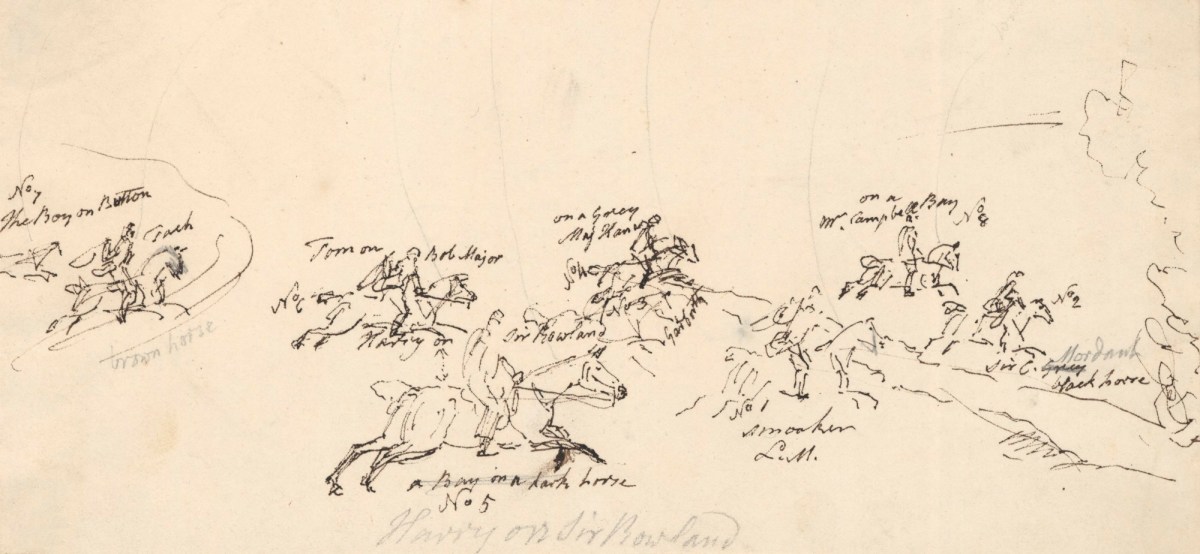 No 7
The Boy on Button
Jack
brown horse
Tom on Bob Major
No 6
Harry on Sir Rowland
a Bay on a dark horse
No 5
Harry on Sir Rowland
on a Grey
No 4
No 3
No 1
smoaker
L.M.
on a
Mr. Campbell Bay
No 8
No 2
Sir C. Grey Mordant
black horse